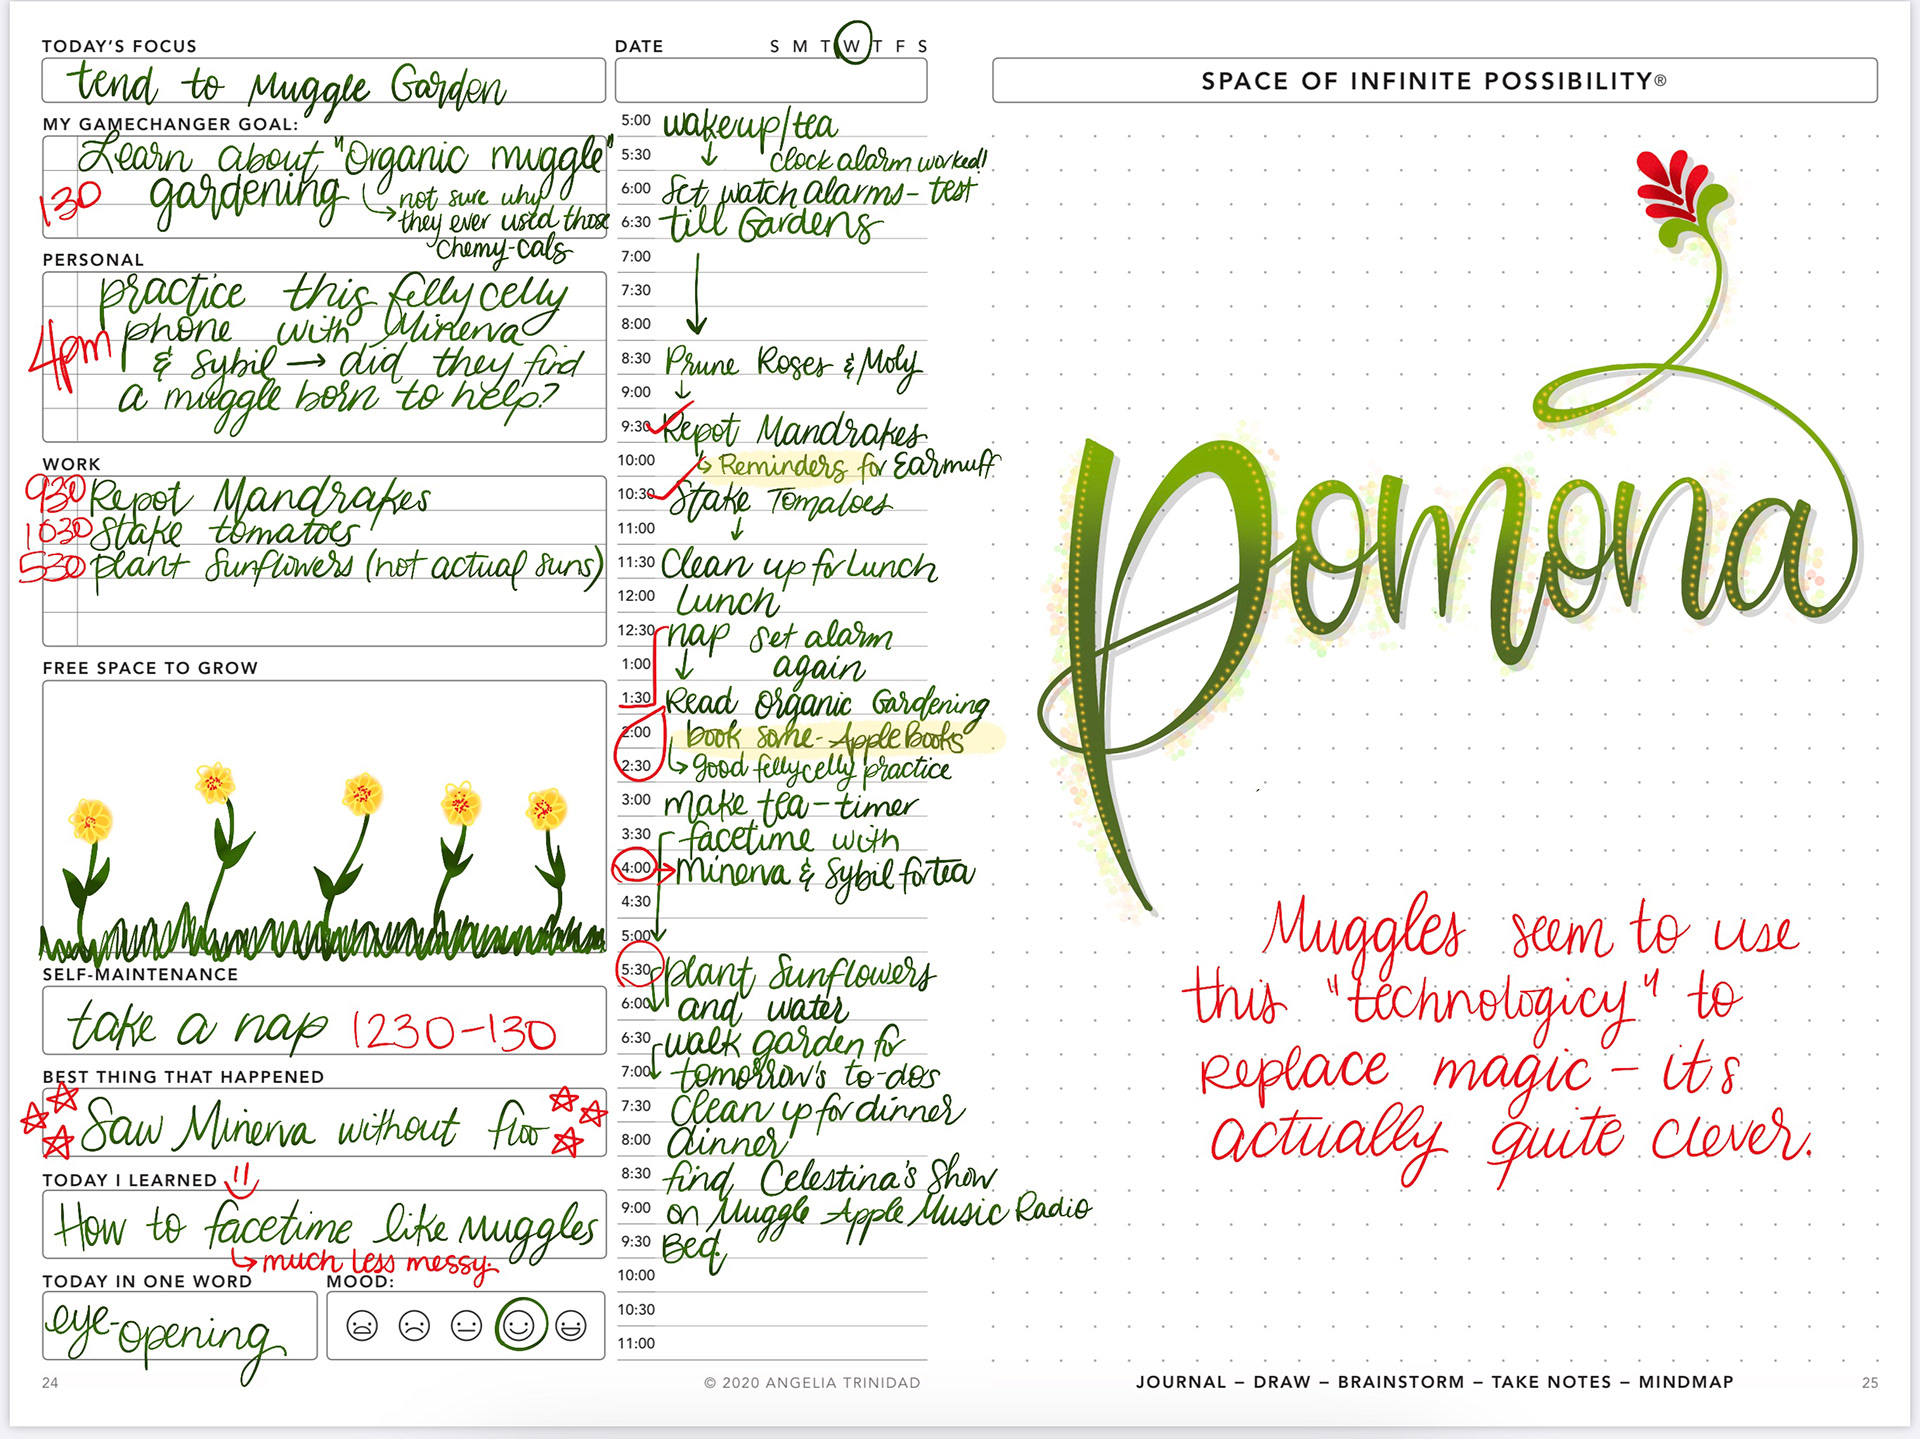 TODAY'S FOCUS
tend to Muggle Garden
MY GAMECHANGER GOAL:
Learn about "Organic muggle"
130 gardening
not sure why
they ever used those
Chemy-Cals
PERSONAL
practice this fellycelly
phone with Minerva
4pm
& Sybil → did they find
a muggle born to help?
WORK
930 Repot Mandrakes
1030 Stake tomatoes
530 plant Sunflowers (not actual suns)
FREE SPACE TO GROW
SELF-MAINTENANCE
take a nap 1230-130
BEST THING THAT HAPPENED
Saw Minerva without floo
TODAY I LEARNED
How to facetime like muggles
much less messy.
TODAY IN ONE WORD
eye-opening
MOOD:
24
DATE S M T W T F S
5:00 wakeup/tea
5:30 clock alarm worked!
6:00 Set watch alarms - test
6:30 till Gardens
7:00
7:30
8:00
8:30 Prune Roses & Moly
9:00
9:30 Repot Mandrakes
10:00 Reminders for Earmuff
10:30 Stake Tomatoes
11:00
11:30 Clean up for Lunch
12:00 Lunch
12:30 nap set alarm
1:00 again
1:30 Read Organic Gardening
2:00 book some - Apple Books
2:30 good fellycelly practice
3:00 make tea - timer
3:30 facetime with
4:00 Minerva & Sybil for tea
4:30
5:00
5:30 plant Sunflowers
6:00 and water
6:30 walk garden for
7:00 tomorrow's to-dos
7:30 Clean up for dinner
8:00 dinner
8:30 find Celestina's Show
9:00 on Muggle Apple Music Radio
9:30 Bed.
10:00
10:30
11:00
© 2020 ANGELIA TRINIDAD
SPACE OF INFINITE POSSIBILITY®
Pomona
Muggles seem to use
this "technologicy" to
replace magic - it's
actually quite clever.
JOURNAL – DRAW – BRAINSTORM – TAKE NOTES – MINDMAP
25